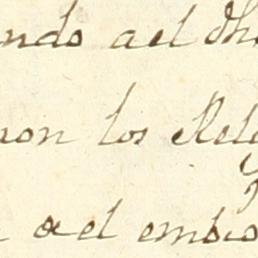 ndo ael dho
ron los Rele
a ael embio